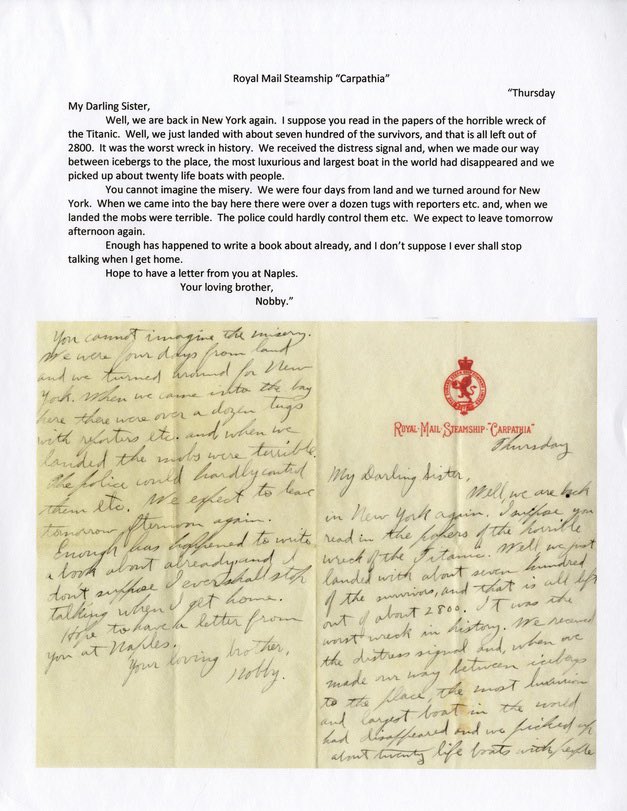 Royal Mail Steamship “Carpathia”
“Thursday
My Darling Sister,
Well, we are back in New York again. I suppose you read in the papers of the horrible wreck of
the Titanic. Well, we just landed with about seven hundred of the survivors, and that is all left out of
2800. It was the worst wreck in history. We received the distress signal and, when we made our way
between icebergs to the place, the most luxurious and largest boat in the world had disappeared and we
picked up about twenty life boats with people.
You cannot imagine the misery. We were four days from land and we turned around for New
York. When we came into the bay here there were over a dozen tugs with reporters etc. and, when we
landed the mobs were terrible. The police could hardly control them etc. We expect to leave tomorrow
afternoon again.
Enough has happened to write a book about already, and I don’t suppose I ever shall stop
talking when I get home.
Hope to have a letter from you at Naples.
Your loving brother,
Nobby.”
ROYAL·MAIL·STEAMSHIP·“CARPATHIA”
Thursday
My Darling Sister,
Well, we are back
in New York again. I suppose you
read in the papers of the horrible
wreck of the Titanic. Well we just
landed with about seven hundred
of the survivors, and that is all left
out of about 2800. It was the
worst wreck in history. We received
the distress signal and, when we
made our way between icebergs
to the place, the most luxurious
and largest boat in the world
had disappeared and we picked up
about twenty life boats with people
You cannot imagine the misery.
We were four days from land
and we turned around for New
York. When we came into the bay
here there were over a dozen tugs
with reporters etc. and when we
landed the mobs were terrible.
The police could hardly control
them etc. We expect to leave
tomorrow afternoon again.
Enough has happened to write
a book about already and I
don't suppose I ever shall stop
talking when I get home.
Hope to have a letter from
you at Naples.
Your loving brother,
Nobby.